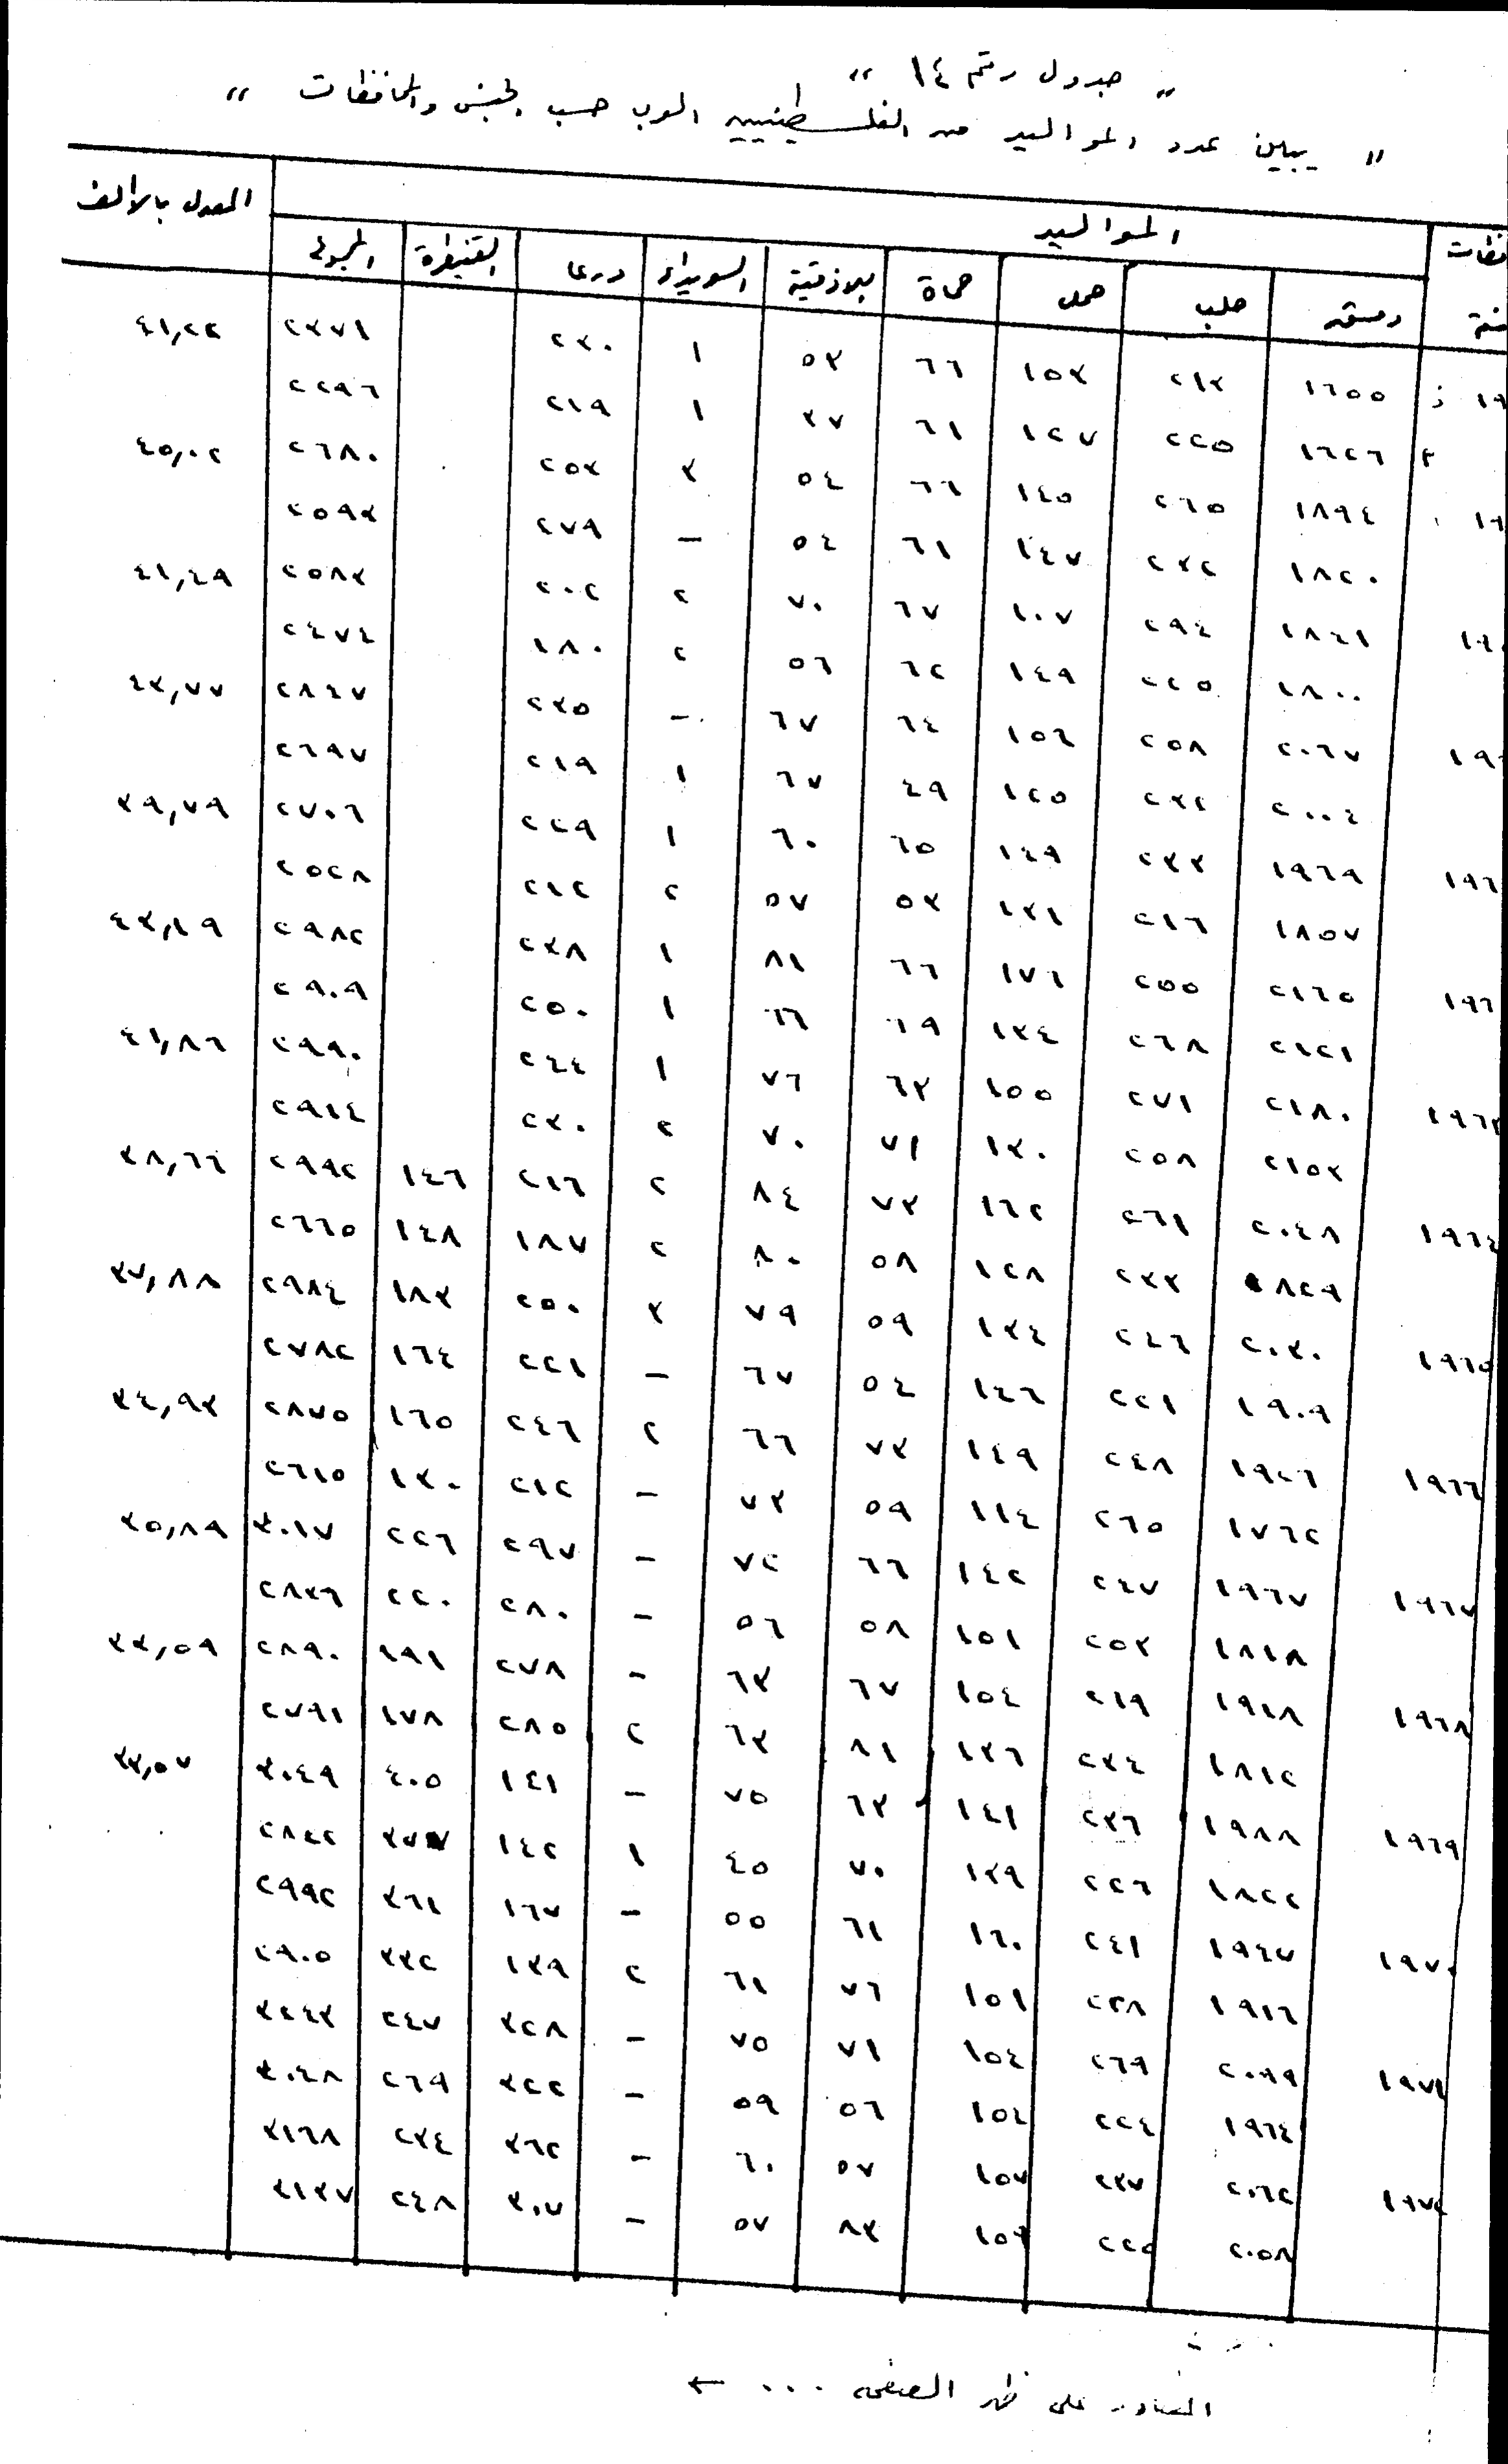 " جدول رقم ١٤ "
" يبين عدد المواليد من الفلسطينيين العرب حسب الجنس والمحافظات "
المواليد المعدل بالالف
دمشق حلب حمص حماة اللاذقية السويداء درعا القنيطرة المجموع
١٦٥٥ ٢١٣ ١٥٣ ٦٦ ٥٣ ١ ٢٣٠ ٢٣٧١ ٤١,٢٢
١٦٢٦ ٢٢٥ ١٢٧ ٦١ ٣٧ ١ ٢١٩ ٢٢٩٦
١٨٩٤ ٢٦٥ ١٤٥ ٦٦ ٥٤ ٣ ٢٥٣ ٢٦٨٠ ٤٥,٠٢
١٨٢٠ ٢٣٢ ١٤٧ ٦١ ٥٤ - ٢٧٩ ٢٥٩٣
١٨٤١ ٢٩٤ ١٠٧ ٦٧ ٧٠ ٢ ٢٠٢ ٢٥٨٣ ٤١,٤٩
١٨٠٠ ٢٢٥ ١٤٩ ٦٢ ٥٦ ٢ ١٨٠ ٢٤٧٤
٢٠٦٧ ٢٥٨ ١٥٦ ٦٤ ٦٧ - ٢٣٥ ٢٨٤٧ ٤٣,٧٧
٢٠٠٤ ٢٣٢ ١٢٥ ٤٩ ٦٧ ١ ٢١٩ ٢٦٩٧
١٩٦٩ ٢٣٣ ١٤٩ ٦٥ ٦٠ ١ ٢٢٩ ٢٧٠٦ ٣٩,٧٩
١٨٥٧ ٢١٦ ١٣١ ٥٣ ٥٧ ٢ ٢١٢ ٢٥٢٨
٢١٦٥ ٢٥٥ ١٧٦ ٦٦ ٨١ ١ ٢٣٨ ٢٩٨٢ ٤٣,١٩
٢١٢١ ٢٦٨ ١٣٤ ٦٩ ٦٦ ١ ٢٥٠ ٢٩٠٩
١٩٦٣ ٢١٨٠ ٢٧١ ١٥٥ ٦٣ ٧٦ ١ ٢٤٤ ٢٩٩٠ ٤١,٨٦
٢١٥٣ ٢٥٨ ١٣٠ ٧١ ٧٠ ٢ ٢٣٠ ٢٩١٤
١٩٦٤ ٢٠٤٨ ٢٦١ ١٦٢ ٧٣ ٨٤ ٢ ٢١٦ ١٤٦ ٢٩٩٢ ٣٨,٦٦
١٨٢٩ ٢٣٣ ١٢٨ ٥٨ ٨٠ ٢ ١٨٧ ١٤٨ ٢٦٦٥
١٩٦٥ ٢٠٣٠ ٢٤٦ ١٣٤ ٥٩ ٧٩ ٣ ٢٥٠ ١٨٣ ٢٩٨٤ ٣٧,٨٨
١٩٠٩ ٢٢١ ١٤٦ ٥٤ ٦٧ - ٢٢١ ١٦٤ ٢٧٨٢
١٩٦٦ ١٩٢٦ ٢٤٨ ١٤٩ ٧٣ ٦٦ ٢ ٢٤٦ ١٦٥ ٢٨٧٥ ٣٤,٩٣
١٧٦٢ ٢٦٥ ١١٤ ٥٩ ٧٣ - ٢١٢ ١٣٠ ٢٦١٥
١٩٦٧ ١٩٦٧ ٢٤٧ ١٤٢ ٦٦ ٧٢ - ٢٩٧ ٢٢٦ ٣٠١٧ ٣٥,٨٩
١٨١٨ ٢٥٣ ١٥١ ٥٨ ٥٦ - ٢٨٠ ٢٢٠ ٢٨٣٦
١٩٦٨ ١٩١٨ ٢١٩ ١٥٤ ٦٧ ٦٣ - ٢٧٨ ١٩١ ٢٨٩٠ ٣٣,٥٩
١٨١٢ ٢٣٤ ١٣٦ ٨١ ٦٣ ٢ ٢٨٥ ١٧٨ ٢٧٩١
١٩٦٩ ١٩٨٨ ٢٣٦ ١٤١ ٦٣ ٧٥ - ١٤١ ٤٠٥ ٣٠٤٩ ٣٣,٥٧
١٨٢٢ ٢٢٦ ١٣٩ ٧٠ ٤٥ ١ ١٤٢ ٣٧٧ ٢٨٢٢
١٩٧٠ ١٩٤٧ ٢٤١ ١٦٠ ٦١ ٥٥ - ١٦٧ ٣٦١ ٢٩٩٢
١٩١٦ ٢٢٨ ١٥١ ٧٦ ٦١ ٢ ١٣٩ ٣٣٢ ٢٩٠٥
١٩٧١ ٢٠٩٩ ٢٦٩ ١٥٤ ٧١ ٧٥ - ٣٢٨ ٢٤٧ ٣٢٤٣
١٩٦٤ ٢٢٤ ١٥٤ ٥٦ ٥٩ - ٣٢٢ ٢٦٩ ٣٠٤٨
١٩٧٢ ٢٠٦٢ ٢٣٧ ١٥٧ ٥٧ ٦٠ - ٣٦٢ ٢٣٤ ٣١٦٨
٢٠٥٨ ٢٢٥ ١٥٩ ٨٣ ٥٧ - ٣٠٧ ٢٤٨ ٣١٣٧
المصادر على ظهر الصفحة ... ←